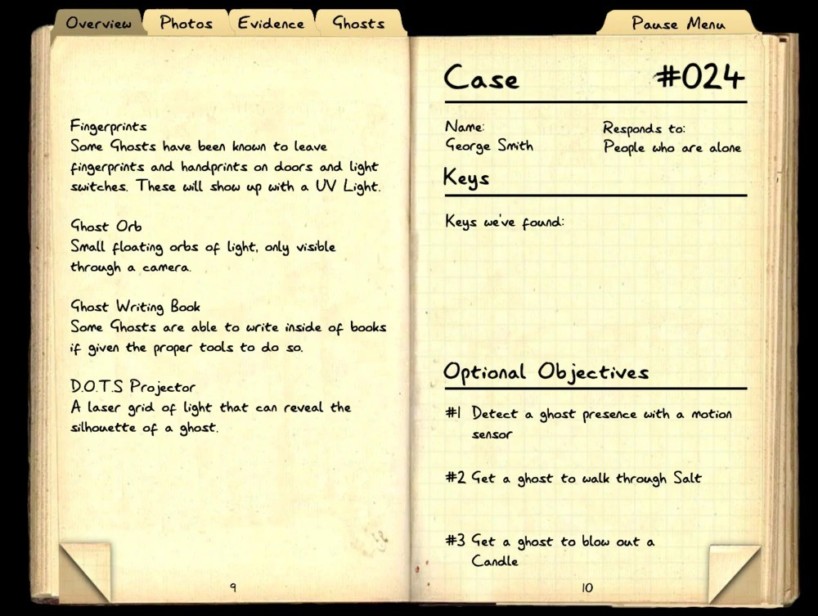 Overview
Photos
Evidence
Ghosts
Pause Menu
Fingerprints
Some Ghosts have been known to leave
fingerprints and handprints on doors and light
switches. These will show up with a UV Light.
Ghost Orb
Small floating orbs of light, only visible
through a camera.
Ghost Writing Book
Some Ghosts are able to write inside of books
if given the proper tools to do so.
D.O.T.S Projector
A laser grid of light that can reveal the
silhouette of a ghost.
9
Case #024
Name: Responds to:
George Smith People who are alone
Keys
Keys we've found:
Optional Objectives
#1 Detect a ghost presence with a motion
sensor
#2 Get a ghost to walk through Salt
#3 Get a ghost to blow out a
Candle
10